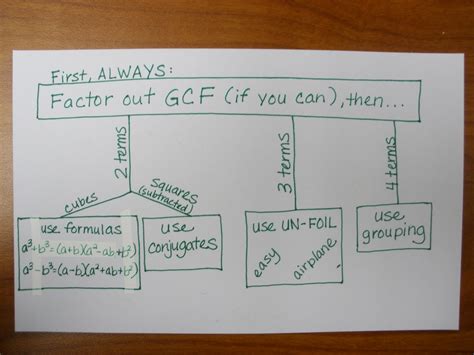 First, ALWAYS:
Factor out GCF (if you can), then...
2 terms
3 terms
4 terms
cubes
squares
(subtracted)
use formulas
a³+b³=(a+b)(a²-ab+b²)
a³-b³=(a-b)(a²+ab+b²)
use
conjugates
use UN-FOIL
easy
airplane
use
grouping